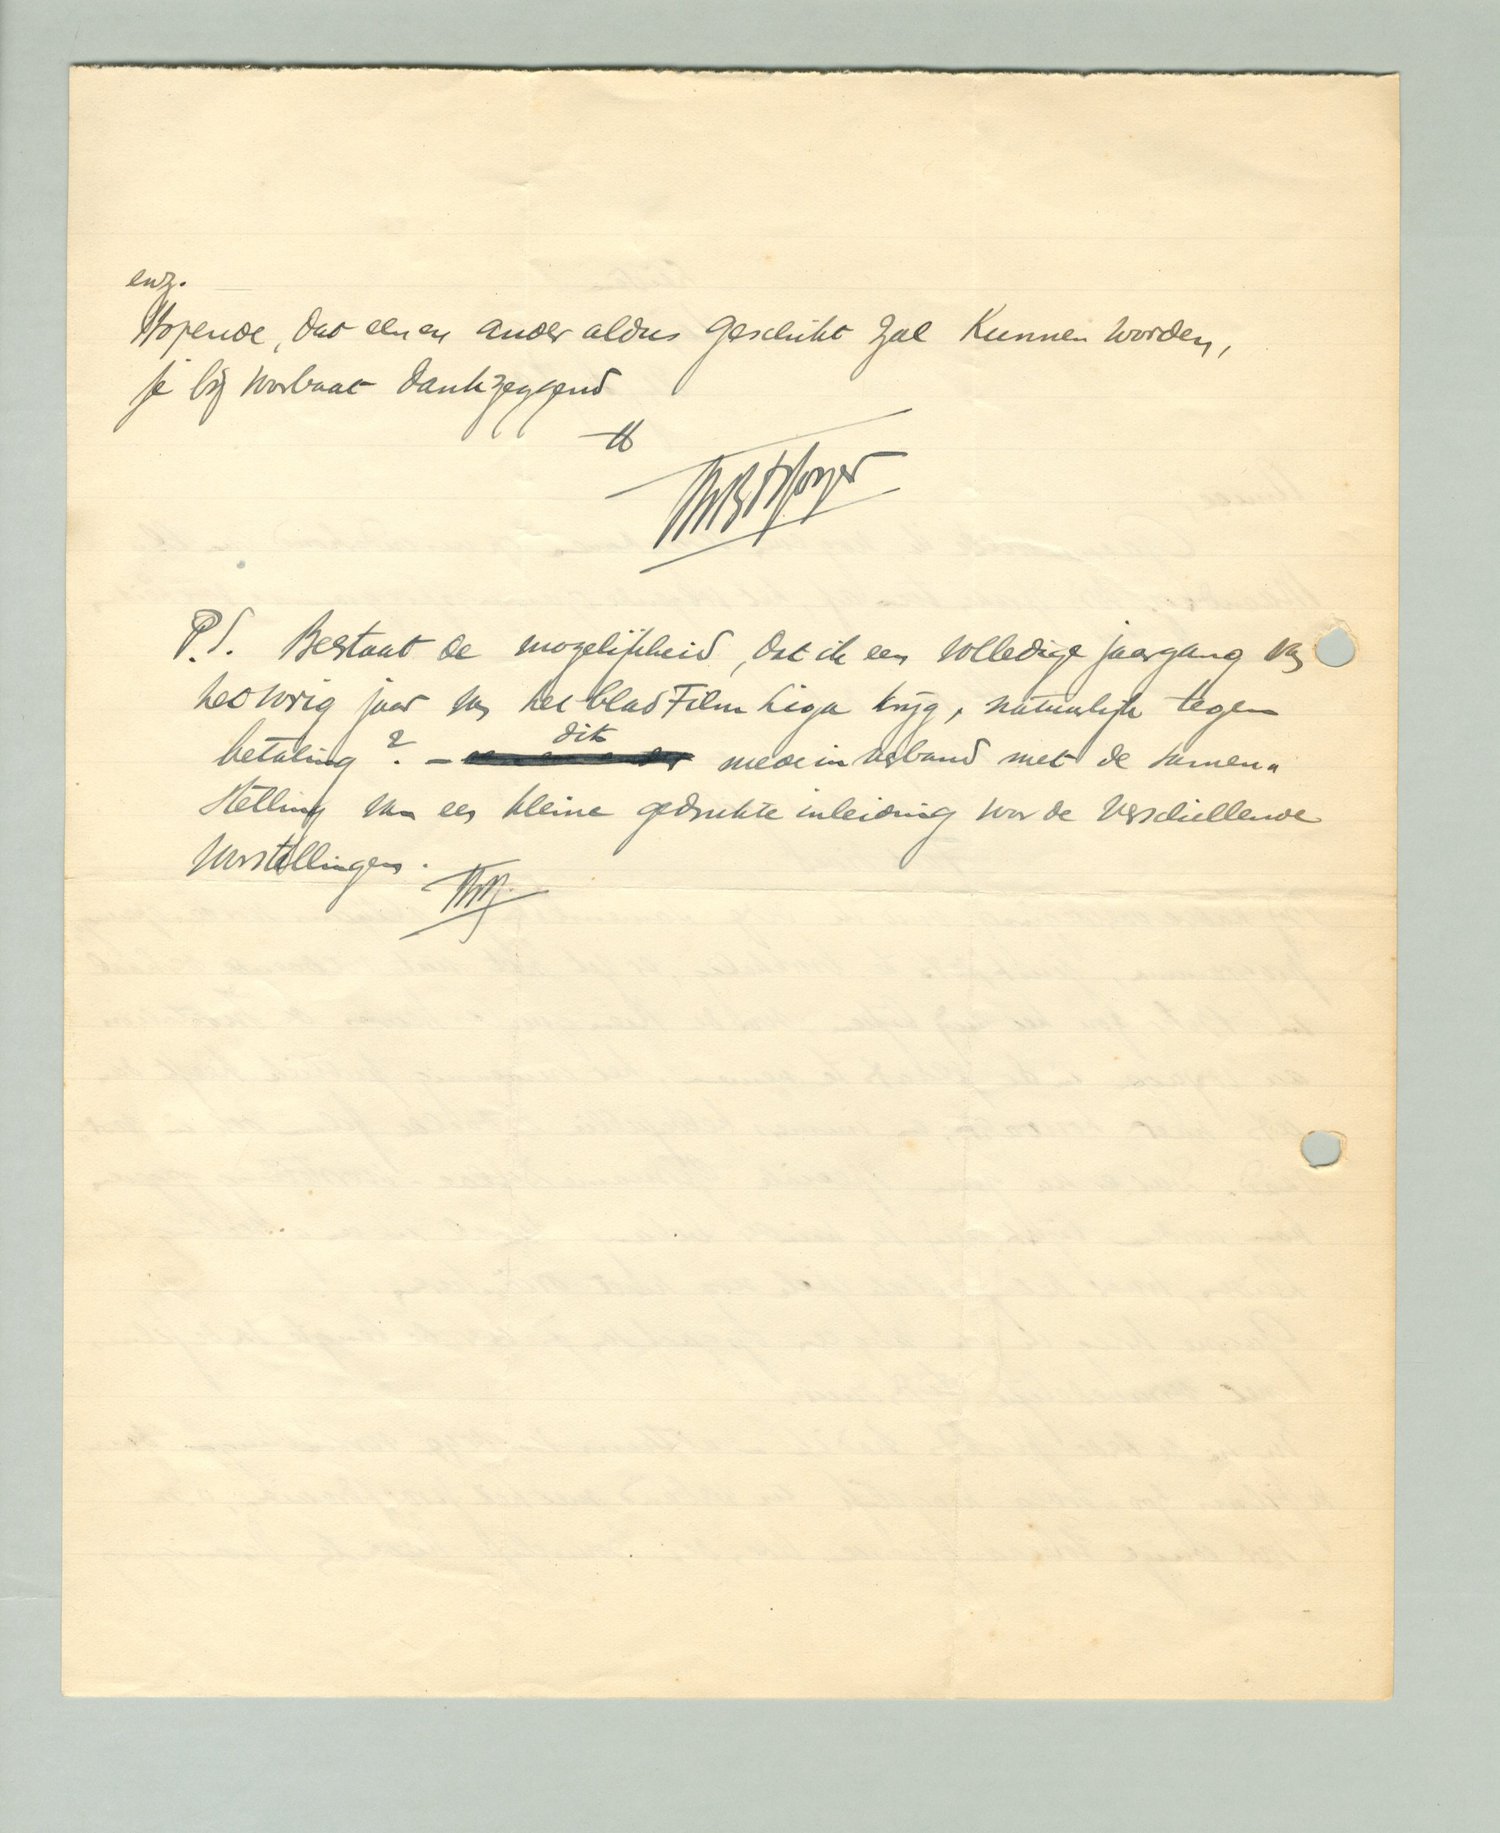 enz.
Hopende, dat een en ander aldus geschikt zal kunnen worden,
je bij voorbaat dankzeggend
P.S. Bestaat de mogelijkheid, dat ik een volledige jaargang van
het vorig jaar van het blad Film Liga krijg, natuurlijk tegen
betaling? – dit mede in verband met de samen„
stelling van een kleine gedrukte inleiding voor de verschillende
voorstellingen.